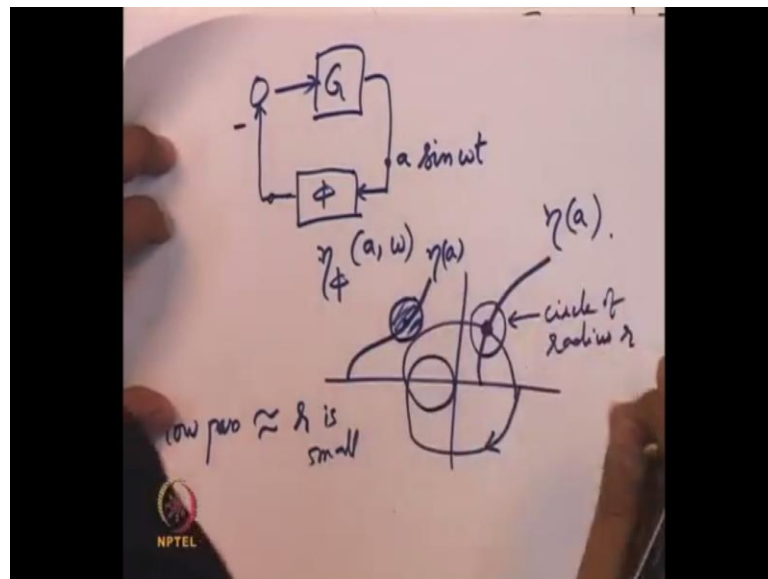 G
-
a sin ωt
Φ
η_Φ (a, ω)
η(a)
η(a).
circle of
radius r
≈ r is
small
NPTEL